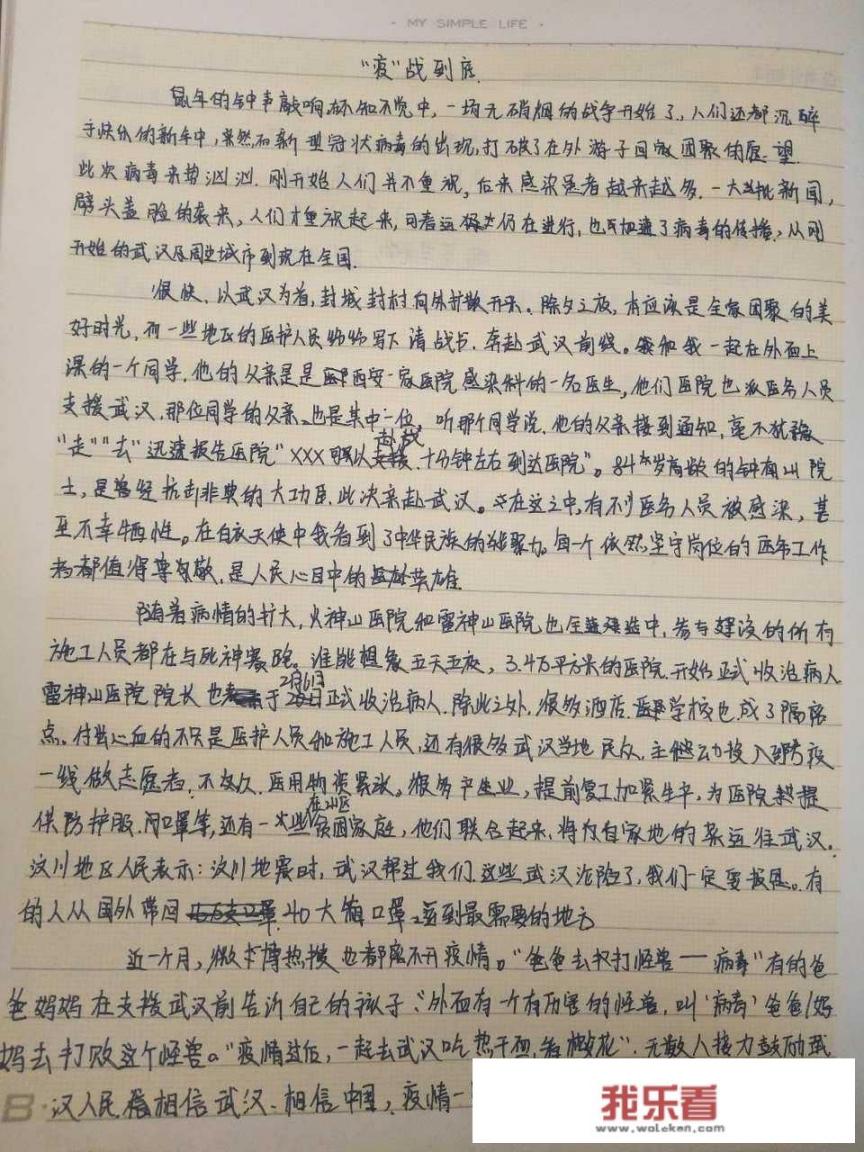 · MY SIMPLE LIFE ·
“疫”战到底.
鼠年的钟声敲响,不知不觉中,一场无硝烟的战争开始了,人们还都沉醉
于快乐的新年中,果然,而新型冠状病毒的出现,打破了在外游子回家团聚的愿望.
此次病毒来势汹汹.刚开始人们并不重视,后来感染患者越来越多.一大批新闻,
劈头盖脸的袭来,人们才重视起来,可春运仍在进行,也加速了病毒的传播,从刚
开始的武汉及周边城市到现在全国.
很快.以武汉为首,封城封村向外扩散开来.除夕之夜,本应该是全家团聚的美
好时光,而一些地区的医护人员纷纷写下请战书.奔赴武汉前线。和我一起在外面上
课的一个同学.他的父亲是是西安一家医院感染科的一名医生,他们医院也派医务人员
支援武汉.那位同学的父亲也是其中一位,听那个同学说.他的父亲接到通知,毫不犹豫
“走”“去”迅速报告医院“XXX可以赴战.十分钟左右到达医院”。84岁高龄的钟南山院
士,是曾经抗击非典的大功臣.此次亲赴武汉。在这之中,有不少医务人员被感染,甚
至不幸牺牲。在白衣天使中我看到了中华民族的凝聚力。每一个依然坚守岗位的医务工作
者都值得尊敬,是人民心目中的英雄.
随着病情的扩大,火神山医院和雷神山医院也在建造中,参与建设的所有
施工人员都在与死神赛跑。谁能想象五天五夜,3.4万平方米的医院.开始正式收治病人
雷神山医院院长也于2月6日正式收治病人.除此之外.很多酒店.学校也成了隔离
点。付出心血的不只是医护人员和施工人员,还有很多武汉当地民众,主动投入到防疫
一线做志愿者.不仅仅.医用物资紧张。很多产业,提前复工加紧生产,为医院提
供防护服.口罩等,还有一些在山区贫困家庭,他们联合起来,将自家地的菜运往武汉。
汶川地区人民表示:汶川地震时,武汉帮过我们.这些武汉沦陷了,我们一定要报恩。有
的人从国外带回40大箱口罩.送到最需要的地方
近一个月,微博热搜也都离不开疫情。“爸爸去打怪兽——病毒”有的爸
爸妈妈在支援武汉前告诉自己的孩子:“外面有一个有厉害的怪兽,叫‘病毒’爸爸/妈
妈去打败这个怪兽。“疫情过后,一起去武汉吃热干面,看樱花”.无数人接力鼓励武
汉人民.相信武汉.相信中国,疫情一
我乐看
www.woleken.com